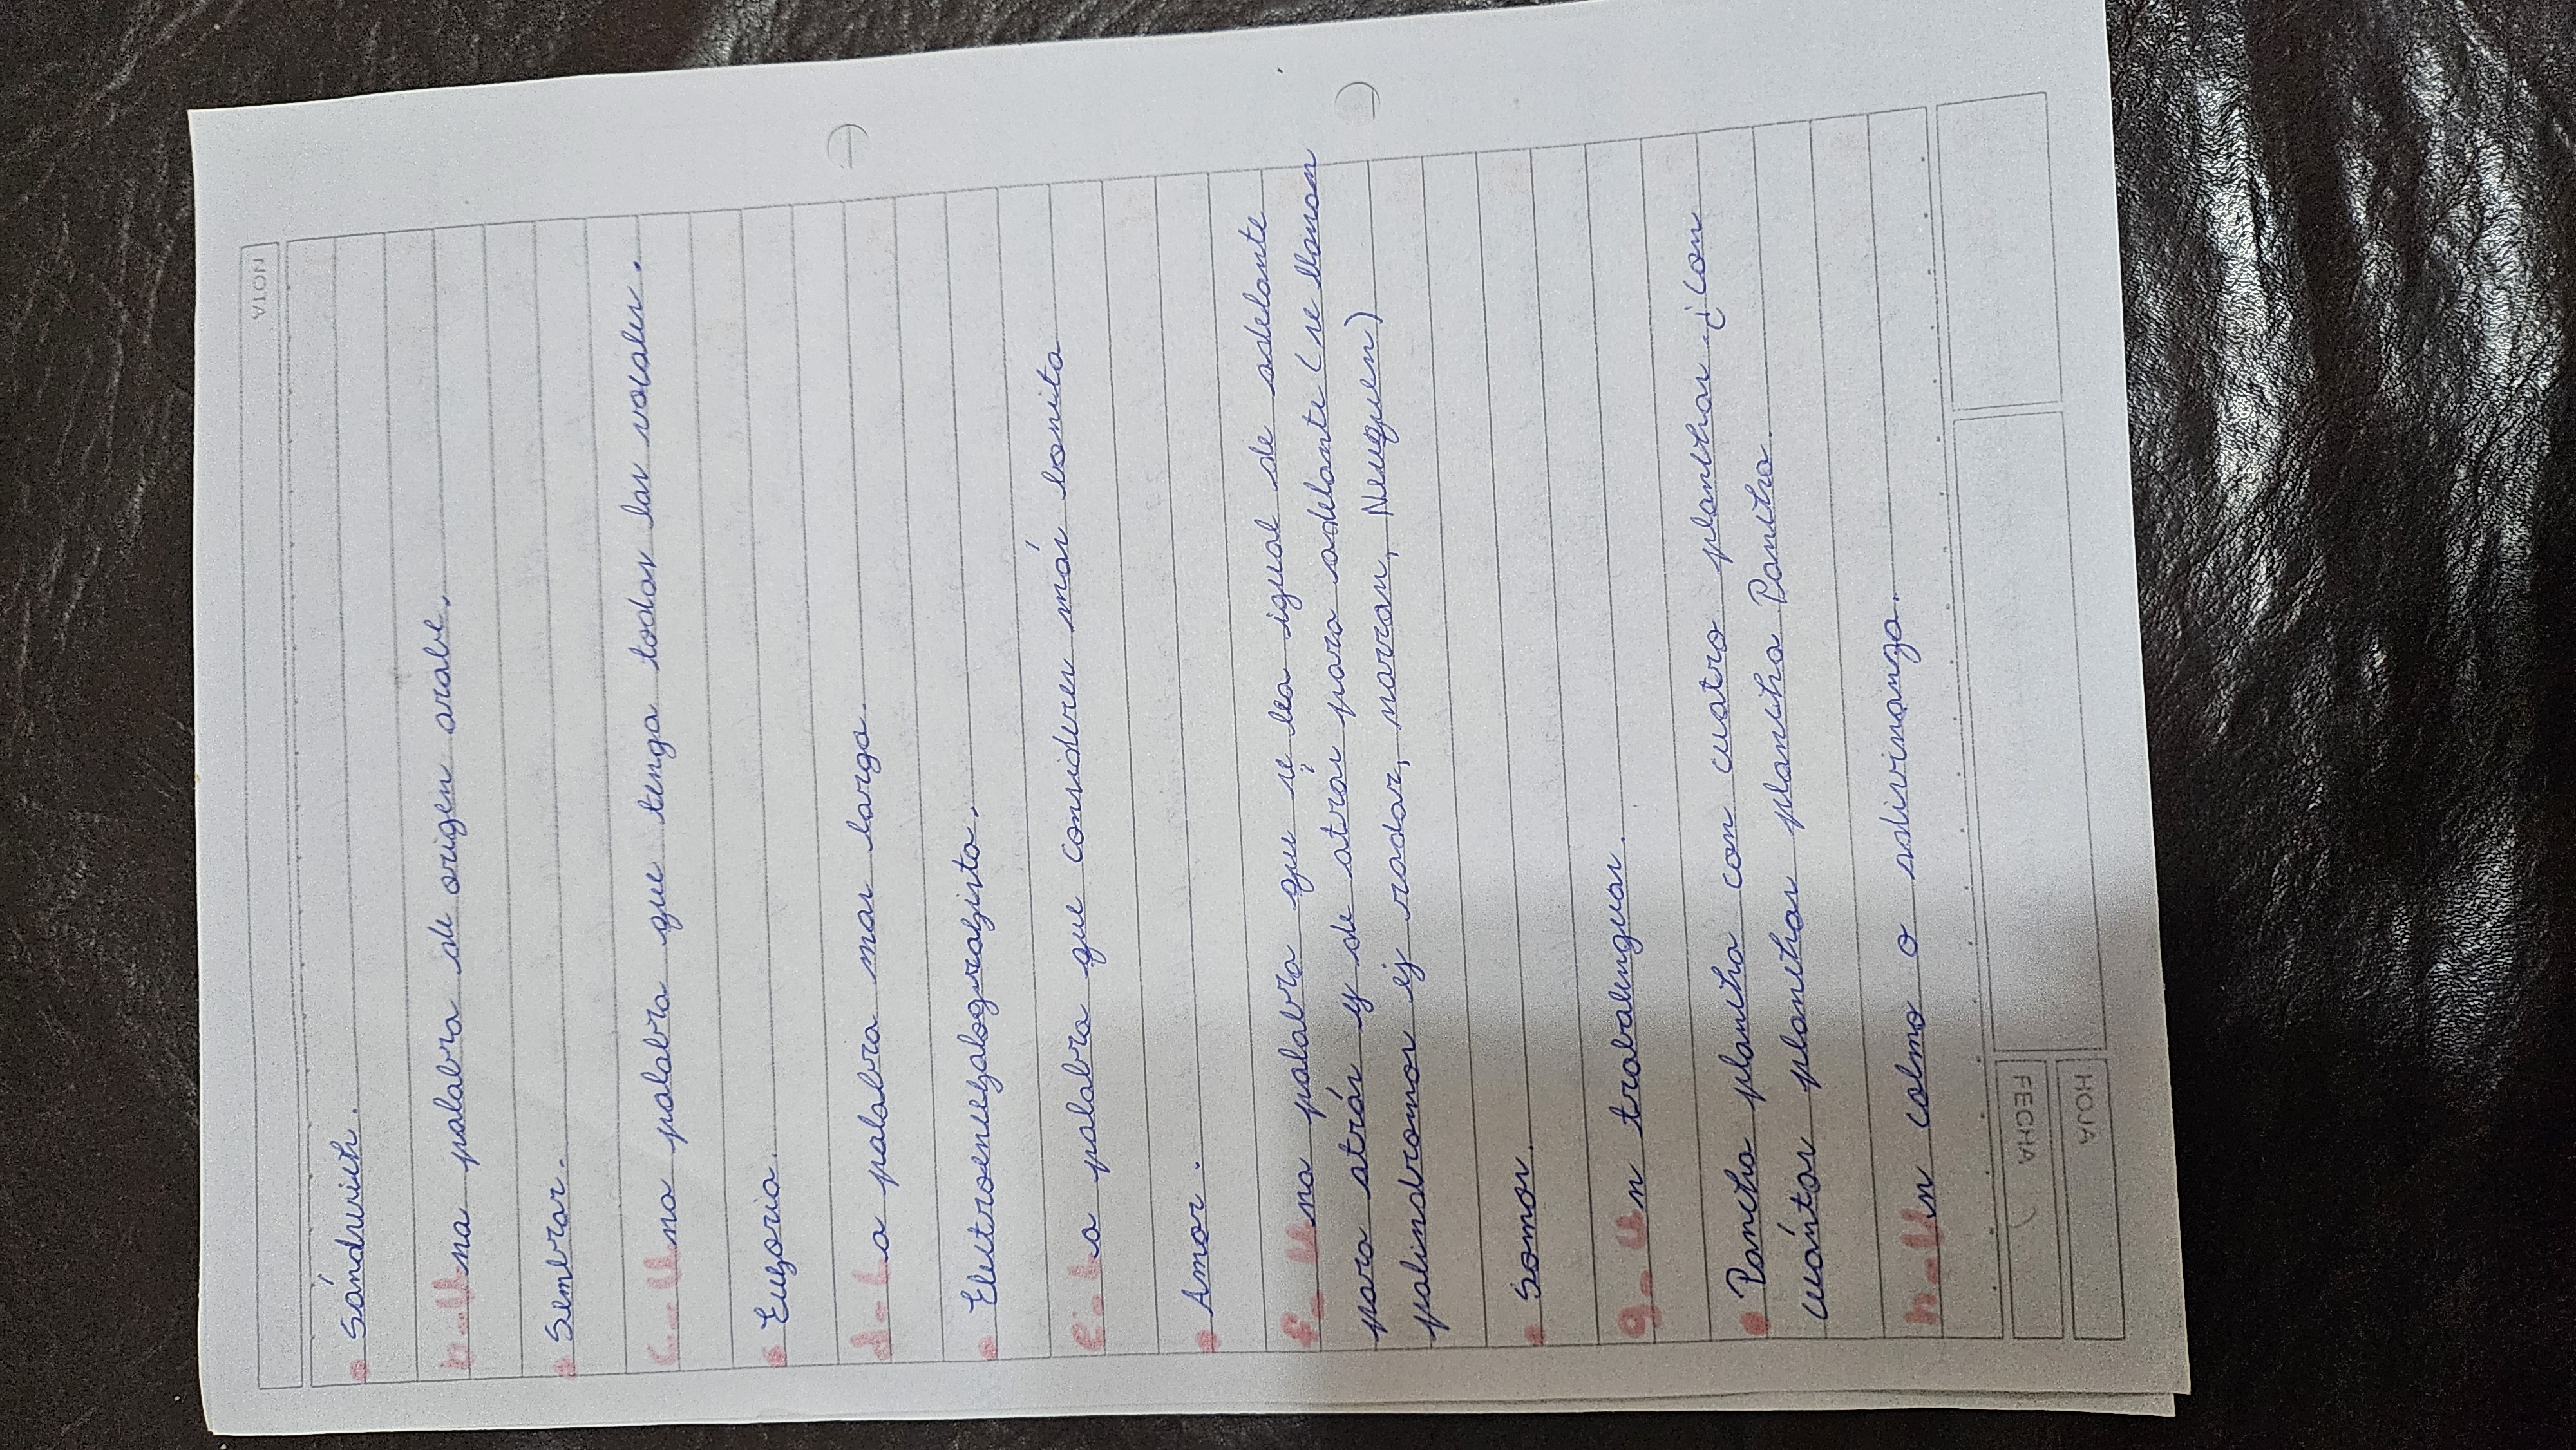 NOTA
• Sándwich.
b-Una palabra de origen arabe.
• Sembrar.
c-Una palabra que tenga todas las vocales.
• Euforia.
d-La palabra mas larga.
• Electroencefalografista.
e-La palabra que consideres más bonita
• Amor.
f-Una palabra que se lea igual de adelante
para atrás y de atrás para adelante (se llaman
palindromos ej radar, narran, Neuquen)
• Somos.
g-Un trabalenguas.
• Pancha plancha con cuatro planchas ¿Con
cuántas planchas plancha Pancha.
h-Un colmo o adivinanza.
HOJA
FECHA